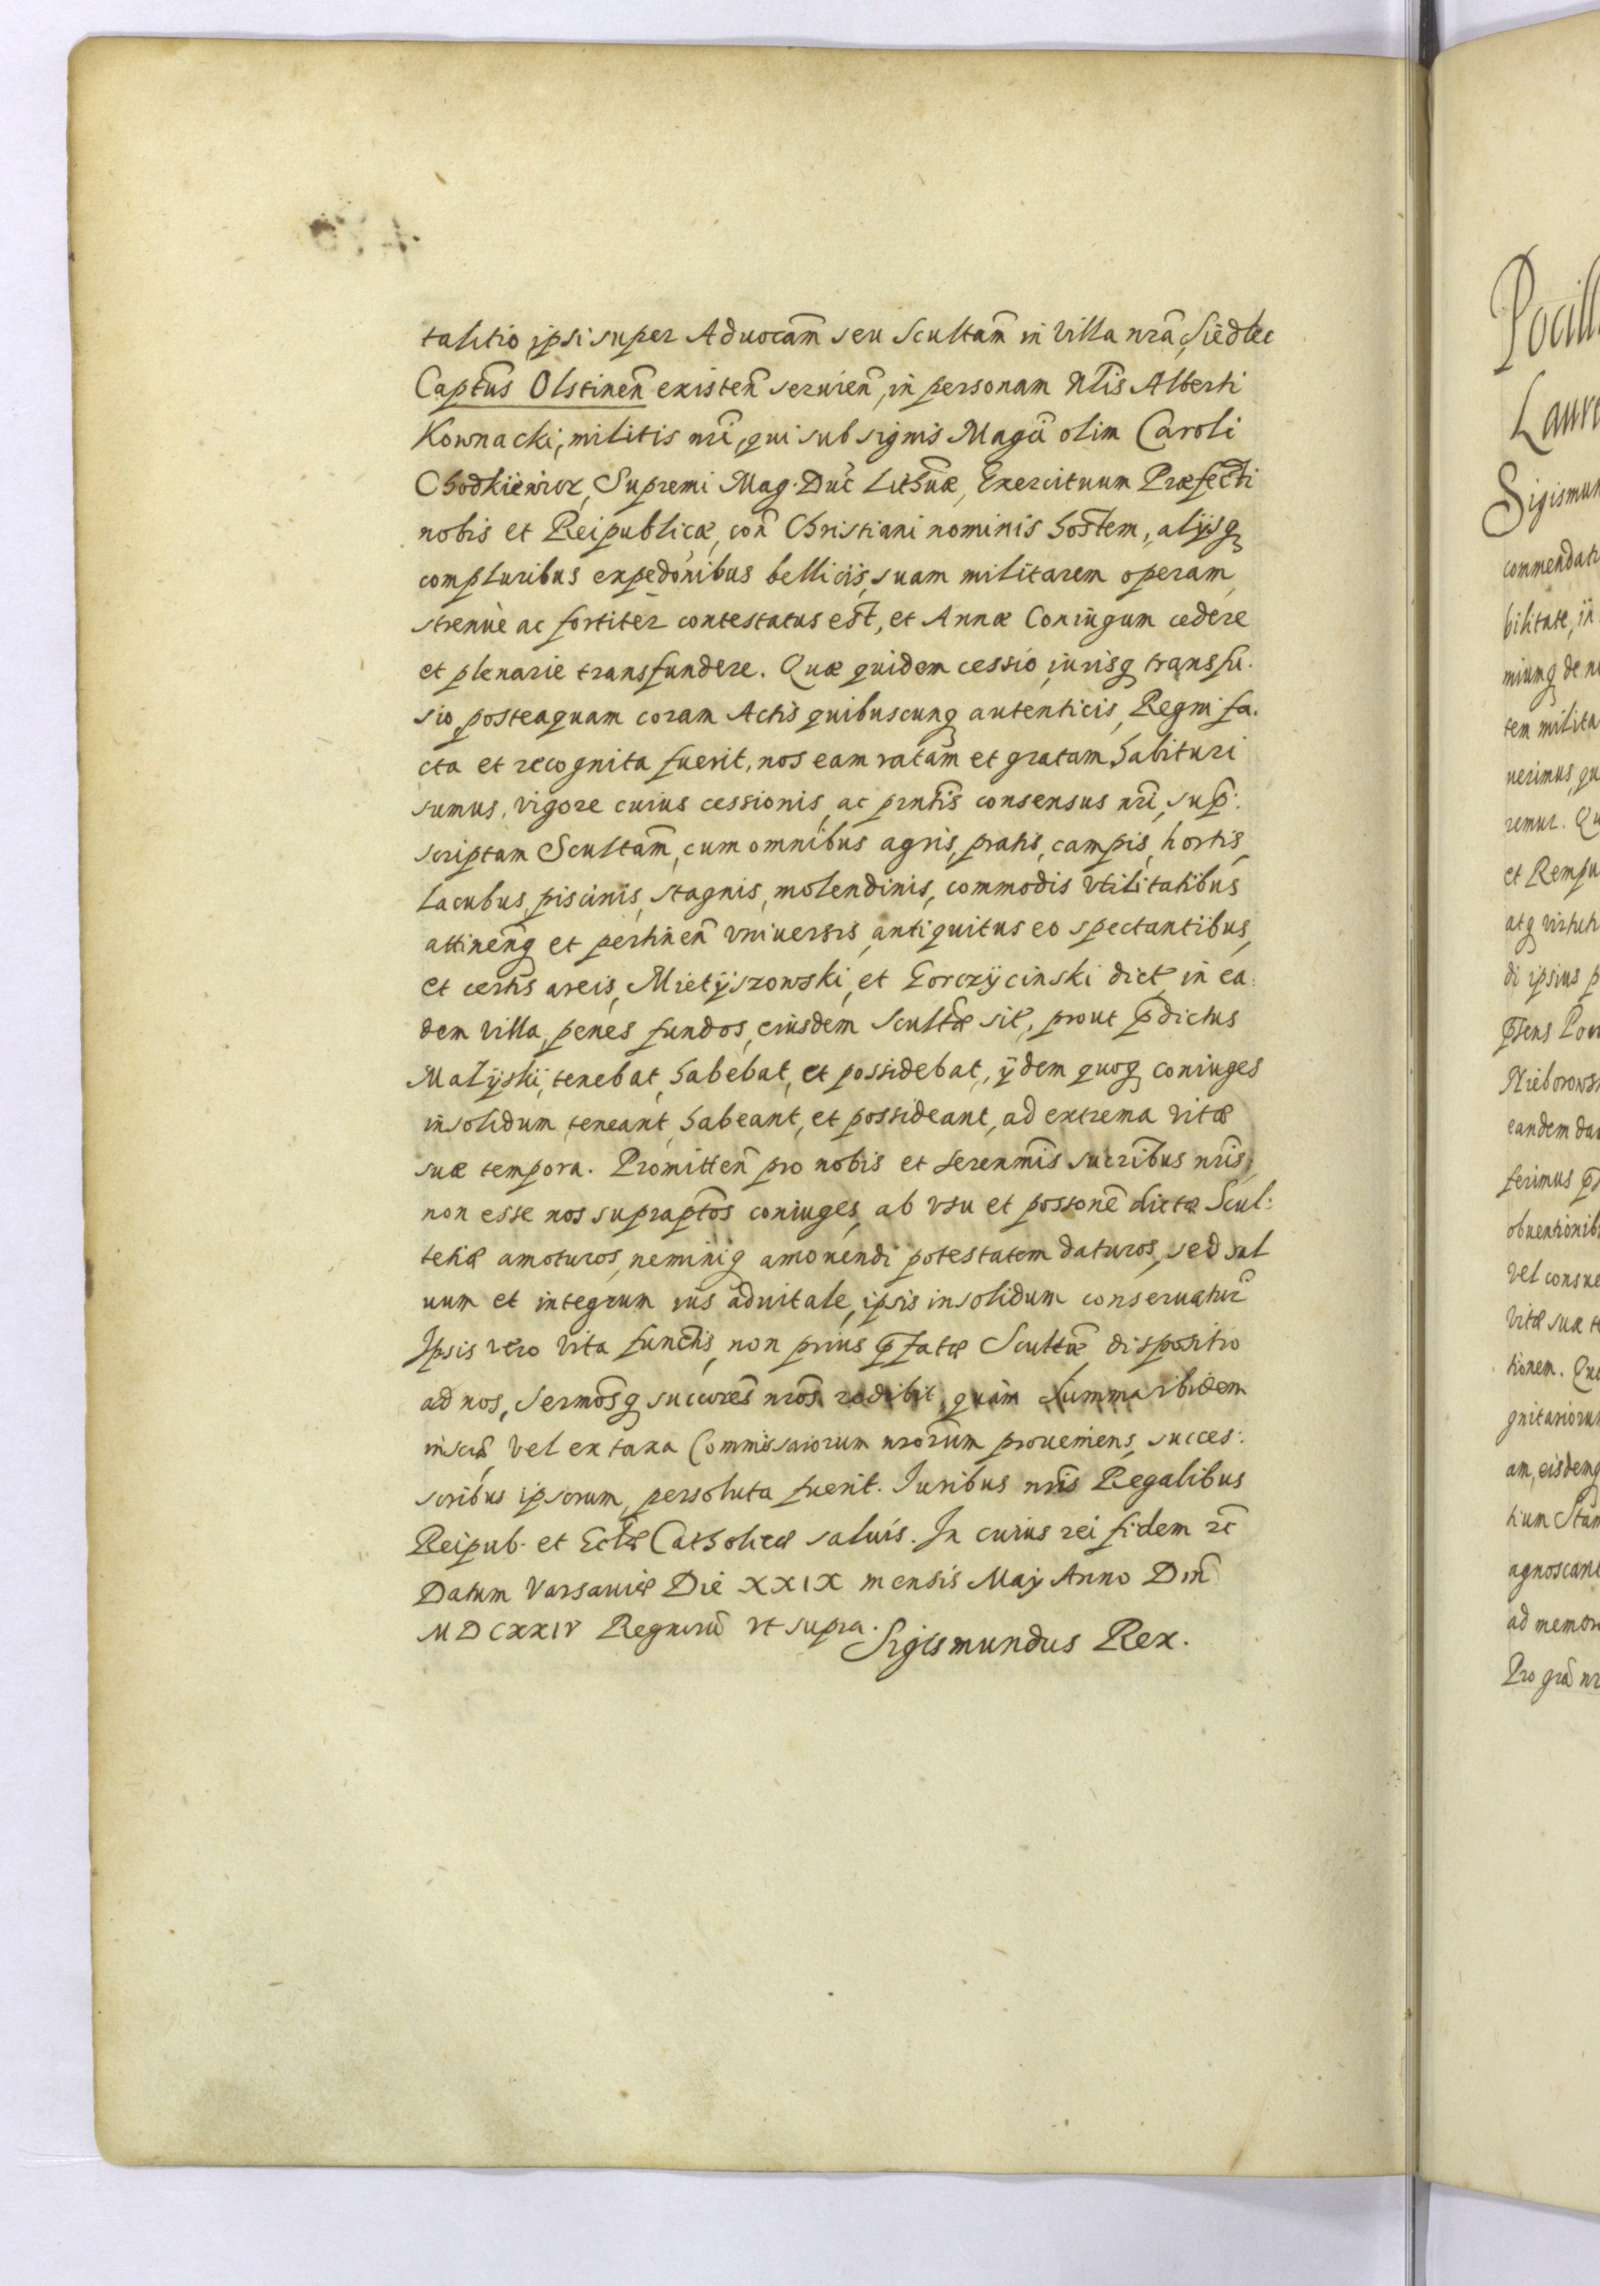 talitio ipsi super Aduocam̃ seu Scultam̃ in Villa nrã Siedlec
Captũs Olstineñ existeñ seruieñ, in personam Nl̃is Alberti
Kownacki, militis nrĩ, qui sub signis Magcĩ olim Caroli
Chodkiewicz, Supremi Mag. Duc̃ Lithũæ, Exercituum Præfecti
nobis et Reipublicæ, coñ Christiani nominis hostem, alijsq
compluribus expedõnibus bellicis, suam militarem operam
strenuè ac fortitèr contestatus est, et Annæ Coniugum cedere
et plenarie transfundere. Quæ quidem cessio iurisq transfu-
sio posteaquam coram Actis quibuscunq autenticis Regni fa-
cta et recognita fuerit, nos eam ratam et gratam habituri
sumus, vigore cuius cessionis, ac prntĩs consensus nrĩ, sup̃:
scriptam Scultam̃, cum omnibus agris, pratis, campis, hortis,
Lacubus, piscinis, stagnis, molendinis, commodis vtilitatibus
attineñq et pertineñ vniuersis antiquitus eo spectantibus,
et certis areis, Mietÿszowski, et Gorczÿcinski dict̃, in ea:
dem Villa, penes fundos, eiusdem Scultæ̃ sit̃, prout p̃dictus
Malÿskÿ, tenebat, habebat, et possidebat, ÿdem quoq coniuges
insolidum teneant, habeant, et possideant, ad extrema vitæ
suæ tempora. Promitteñ pro nobis et Serenmĩs sucrĩbus nrĩs,
non esse nos supraptõs coniuges, ab vsu et possonẽ dictæ Scul:
tetiæ amoturos, neminiq amouendi potestatem daturos, sed sal
uum et integrum ius aduitale, ipsis insolidum conseruatur̃
Ipsis vero vita functis, non prius p̃fatæ Scultæ̃ dispositio
ad nos, Sermõsq succorẽs nrõs redibit, quàm summa ibidem
inscrã, vel ex taxa Commissariorum nrorũm proueniens, succes:
soribus ipsorum, persoluta fuerit. Iuribus nrĩs Regalibus
Reipub. et Eccl̃æ Catholicæ saluis. In cuius rei fidem rc̃
Datum Varsauiæ Die XXIX mensis Maÿ Anno Dnĩ
MDCXXIV Regnorũ vt supra.
Sigismundus Rex.
Pocill
Laure
Sigismun
commendati
bilitate, in
miumq de n
tem milita
uerimus, qu
remur. Qu
et Rempu
atq virtuti
di ipsius p
Nieborows
eandem da
ferimus p̃
obuentionib
vel consue
vitæ suæ t
tionem. Quo
gnitariorum
am, eisdemq
tium Stan
agnoscant
ad memor
Pro grã nr